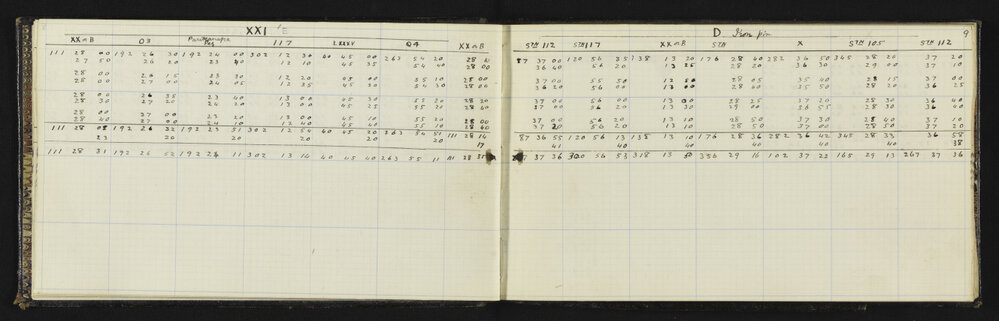 XXI E
XX n B 03 Peg 117 LXXXV 04 XX n B
111 28 00 192 26 30 192 24 00 302 12 30 40 45 00 263 54 20 28
27 50 26 20 23 40 12 10 45 35 54 40 28 00
28 00 26 15 23 30 12 20 45 00 55 10 28 00
28 00 27 00 24 05 12 35 45 30 54 50 28 00
28 00 26 35 23 40 13 00 45 30 55 20 28 20
28 30 27 20 24 20 13 00 45 25 55 20 28 40
28 00 27 00 23 20 13 00 45 10 55 00 28 00
28 40 27 00 24 10 12 40 45 40 55 10 28 40
111 28 08 192 26 32 192 23 51 302 12 54 40 45 20 263 54 51 111 28 14
23 20 20 20 20 20 17
111 28 31 192 26 52 192 24 11 302 13 14 40 45 40 263 55 11 111 28 31
D Iron pin 9
STN 112 STN 117 XX n B STN X STN 105 STN 112
87 37 00 120 56 35 138 13 20 176 28 40 282 36 50 345 28 20 37 20
36 40 56 20 28 20 36 30 29 00 37 10
37 00 55 50 12 50 35 40 28 15 37 00
36 20 56 00 13 00 28 40 35 50 28 20 36 25
37 00 56 00 13 30 28 25 37 20 28 30 36 40
37 40 56 40 13 00 29 00 36 55 28 30 36 40
37 00 56 20 13 10 28 50 37 30 28 40 37 10
37 20 56 00 13 10 28 50 37 00 28 50 37 20
87 36 55 120 56 13 138 13 10 176 28 36 282 36 42 345 28 33 36 58
41 40 40 40 40 40 38
37 36 300 56 53 318 13 50 356 29 16 102 37 22 165 29 13 267 37 36